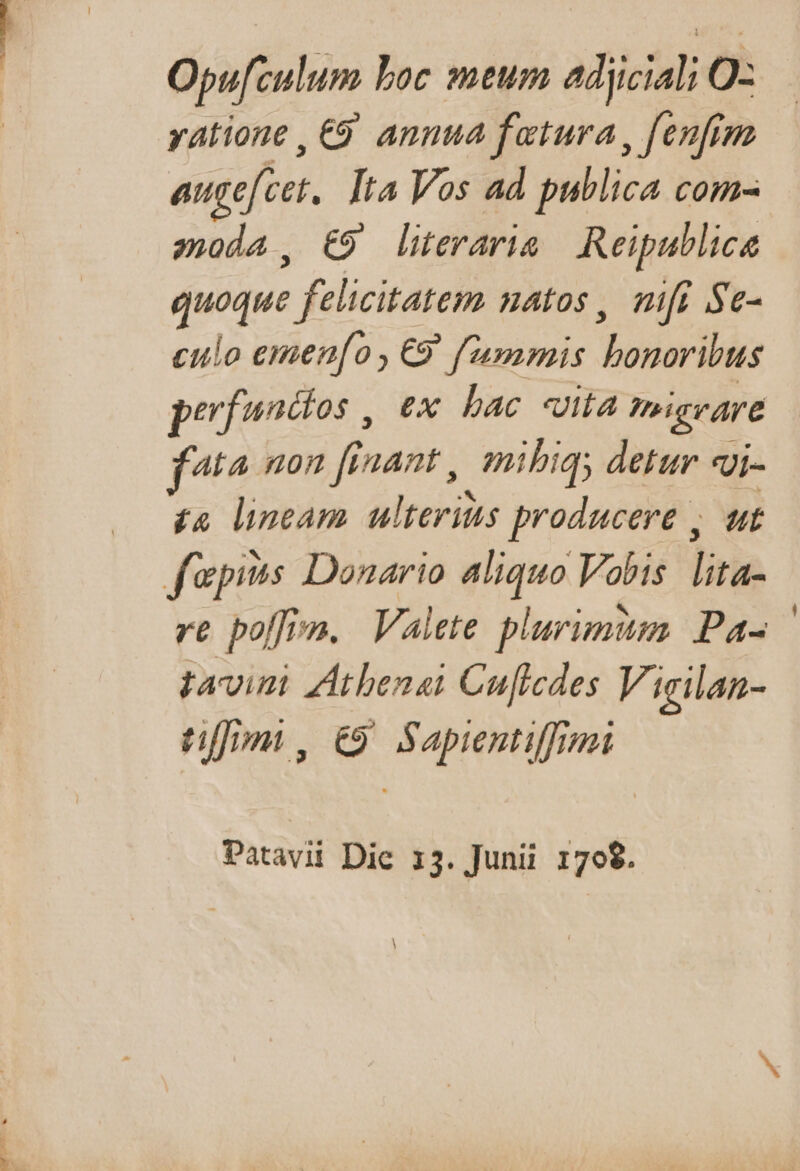 Opuſculum hoc meum adjiciali O-
ratione, & annua fœtura, ſenſim
augeſcet. Ita Vos ad publica com-
moda, & literariæ Reipublicæ
quoque felicitatem natos, niſi Se-
culo emenſo, & ſummis honoribus
perfunctos, ex hac vita migrare
fata non ſinant, mihiq; detur vi-
tæ lineam ulteriùs producere, ut
ſæpiùs Donario aliquo Vobis lita-
re poſſim. Valete plurimùm Pa-
tavini Athenæi Cuſtodes Vigilan-
tiſſimi, & Sapientiſſimi
Patavii Die 13. Junii 1708.